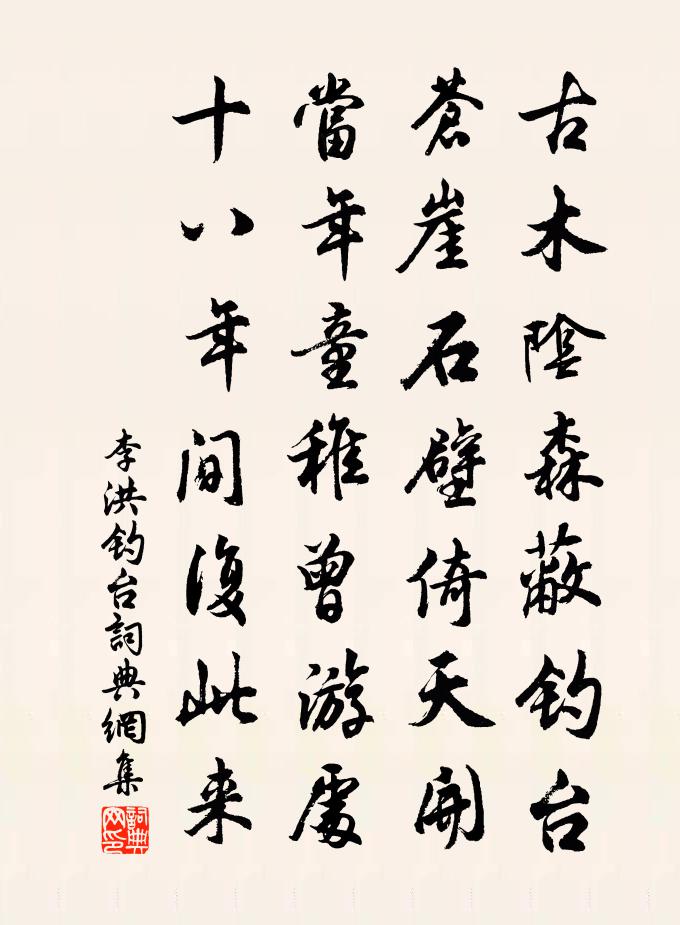 古木陰森蔽钓台
蒼崖石壁倚天開
當年童稚曾游處
十八年間復此来
李洪钓台詞典網集
詞典網印